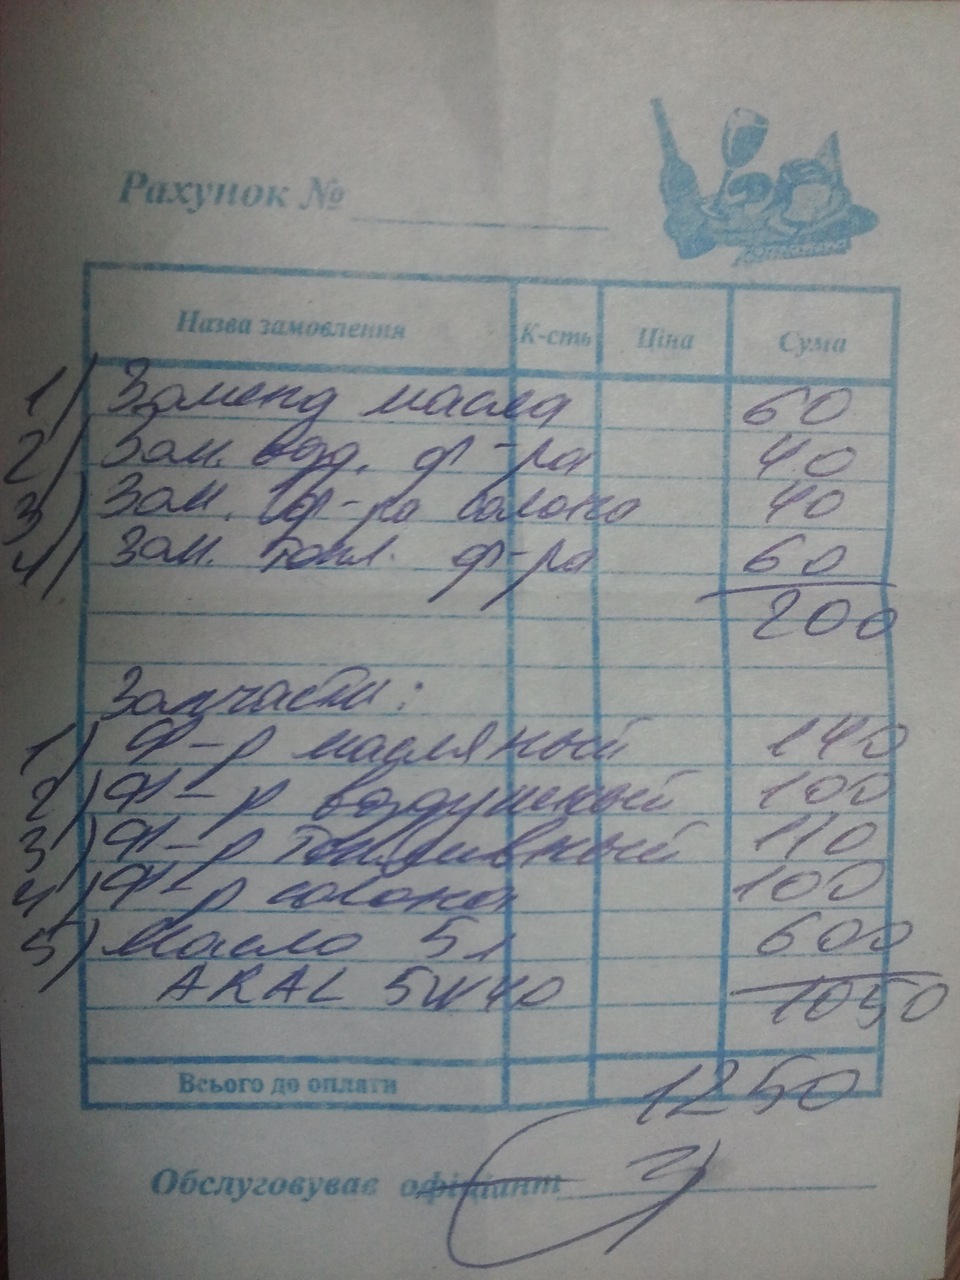 Рахунок №
Назва замовлення К-сть Ціна Сума
1) Замена масла 60
2) Зам. возд. ф-ра 40
3) Зам. ф-ра салона 40
4) Зам. топл. ф-ра 60
200
Запчасти:
1) Ф-р масляный 140
2) Ф-р воздушный 100
3) Ф-р топливный 110
4) Ф-р салона 100
5) Масло 5л 600
ARAL 5W40 1050
Всього до оплати 1250
Обслуговував офіціант